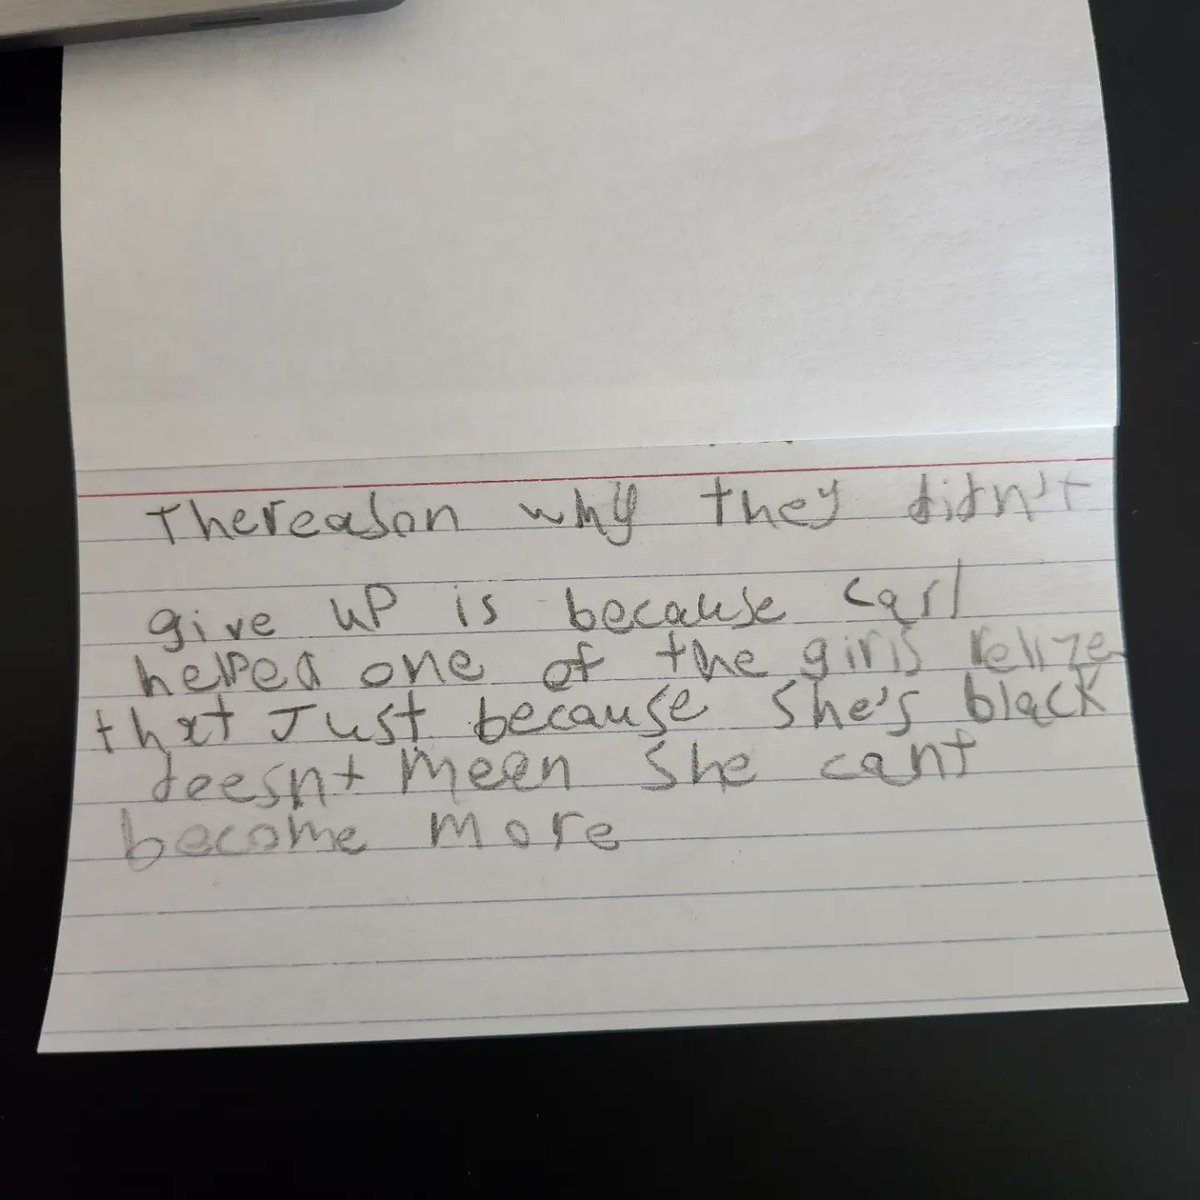 Thereason why they didn't
give up is because carl
helped one of the girls relize
that Just because she's black
doesnt meen she cant
become more